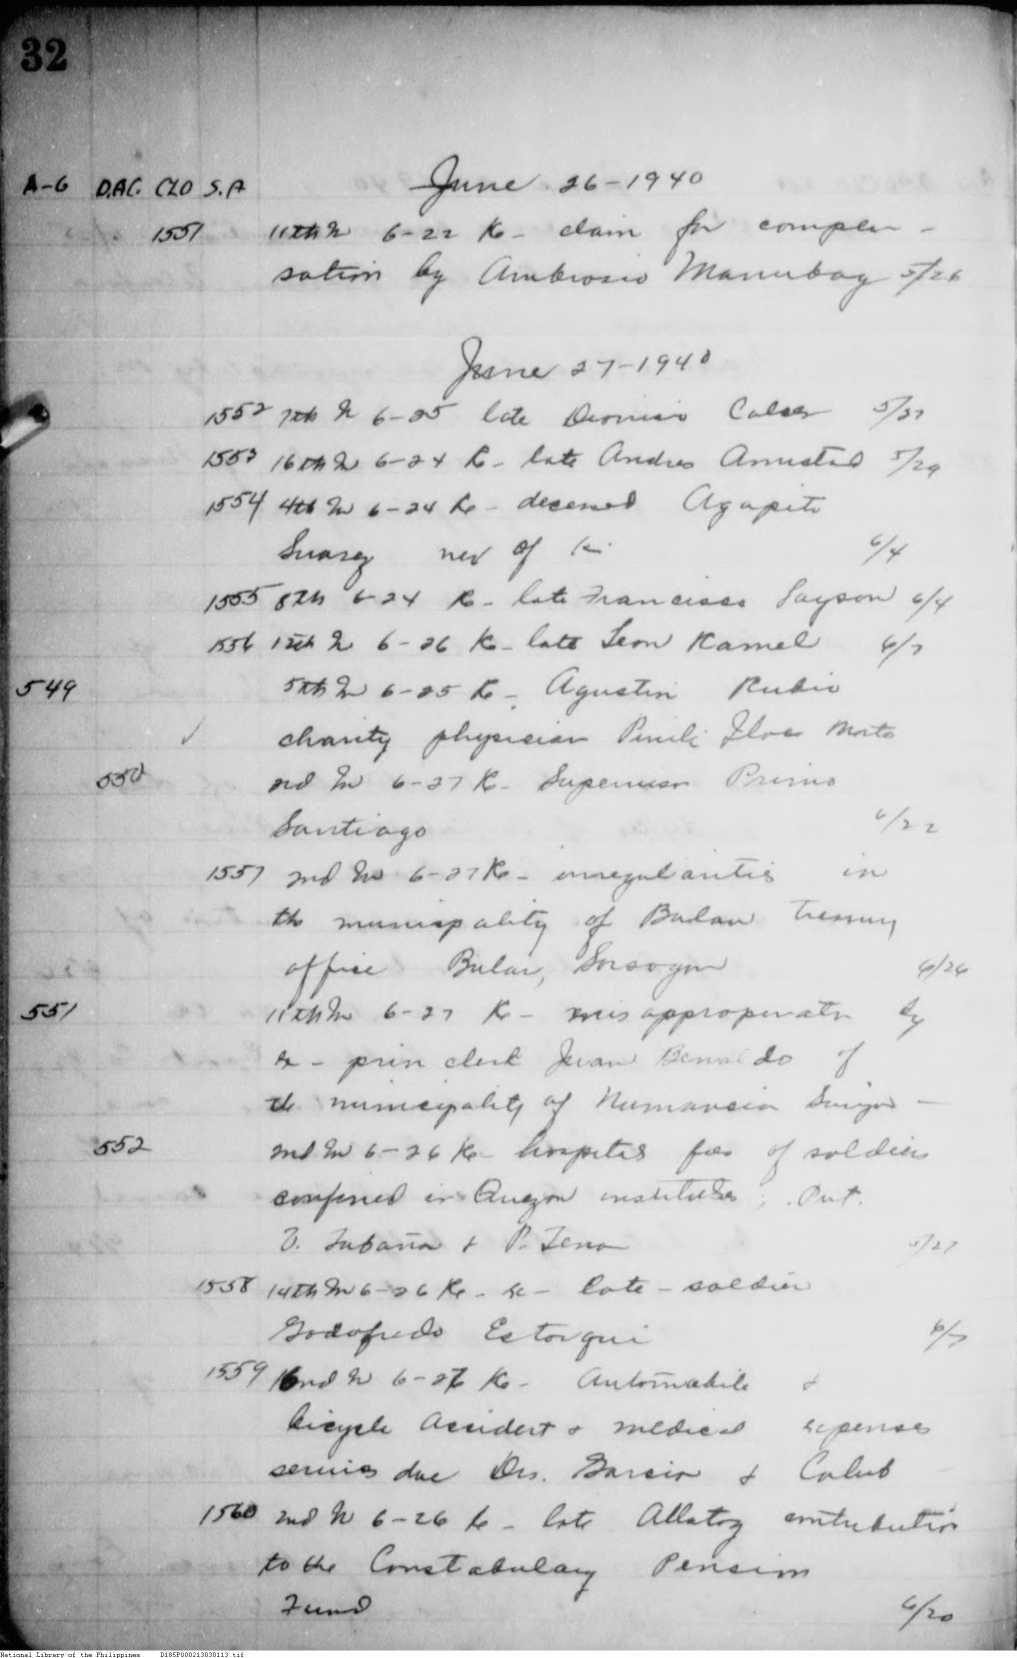 32
A-6 D.AC. CLO S.A June 26-1940
1551 11th In 6-22 Re- claim for compen-
sation by Ambrosio Manubag 5/26
June 27-1940
1552 7th In 6-25 late Dionisio 5/27
1553 16th In 6-24 Re- late Andres Amistad 5/29
1554 4th In 6-24 Re- deceased Agapito
Suarez nex of ki 6/4
1555 8th 6-24 Re- late Francisco Sayson 6/4
1556 12th In 6-26 Re- late Leon Ramel 6/7
549 5th In 6-25 Re- Agustin Rubio
charity physician Pinili Ilocos Norte
550 2nd In 6-27 Re- Supervisor Primo
Santiago 6/22
1557 2nd In 6-27 Re- irregularities in
the municipality of Bulan
office Bulan, Sorsogon 6/26
551 11th In 6-27 Re- by
Re- prin clerk Juan of
the municipality of Numancia
552 2nd In 6-26 Re- hospital fees of soldiers
confined in Quezon institutes; Put.
V. Tubaña & P. Tena 5/27
1558 14th In 6-26 Re- Re- late-soldier
Godofredo Estorqui 6/7
1559 2nd In 6-26 Re- Automobile &
bicycle accident & medical expenses
services due Drs. Garcia & Calub
1560 2nd In 6-26 Re- late contribution
to the Constabulary Pension
Fund 6/20
National Library of the Philippines D185P000213030113.tif